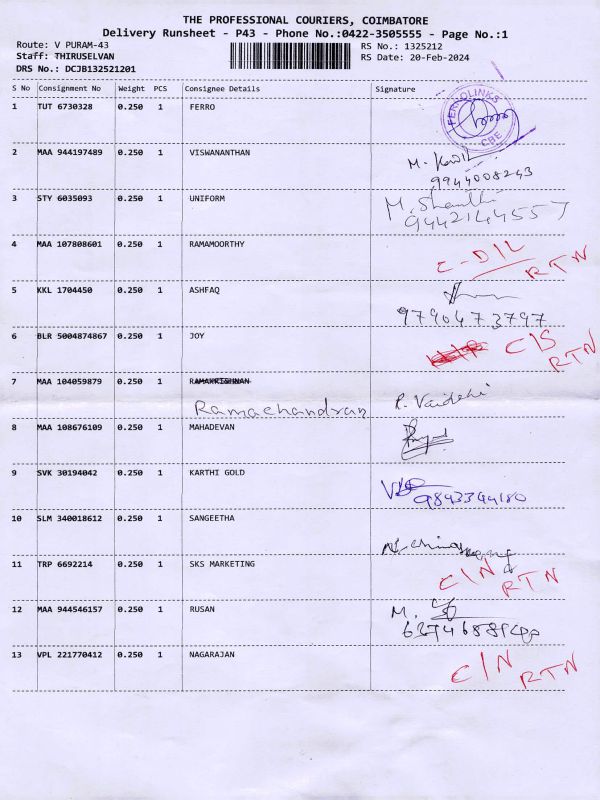 THE PROFESSIONAL COURIERS, COIMBATORE
Delivery Runsheet - P43 - Phone No.:0422-3505555 - Page No.:1
Route: V PURAM-43 RS No.: 1325212
Staff: THIRUSELVAN RS Date: 20-Feb-2024
DRS No.: DCJB132521201
S No Consignment No Weight PCS Consignee Details Signature
1 TUT 6730328 0.250 1 FERRO
FERROLINKS
CBE
2 MAA 944197489 0.250 1 VISWANANTHAN
M.
9944008243
3 STY 6035093 0.250 1 UNIFORM M. Shanthi
9442144557
4 MAA 107808601 0.250 1 RAMAMOORTHY
C-D/L RTN
5 KKL 1704450 0.250 1 ASHFAQ
9790473797
6 BLR 5004874867 0.250 1 JOY C/S RTN
7 MAA 104059879 0.250 1 RAMAKRISHNAN
Ramachandran R. Vaidehi
8 MAA 108676109 0.250 1 MAHADEVAN
9 SVK 30194042 0.250 1 KARTHI GOLD
9843344180
10 SLM 340018612 0.250 1 SANGEETHA
11 TRP 6692214 0.250 1 SKS MARKETING
C/N RTN
12 MAA 944546157 0.250 1 RUSAN M.
13 VPL 221770412 0.250 1 NAGARAJAN
C/N RTN